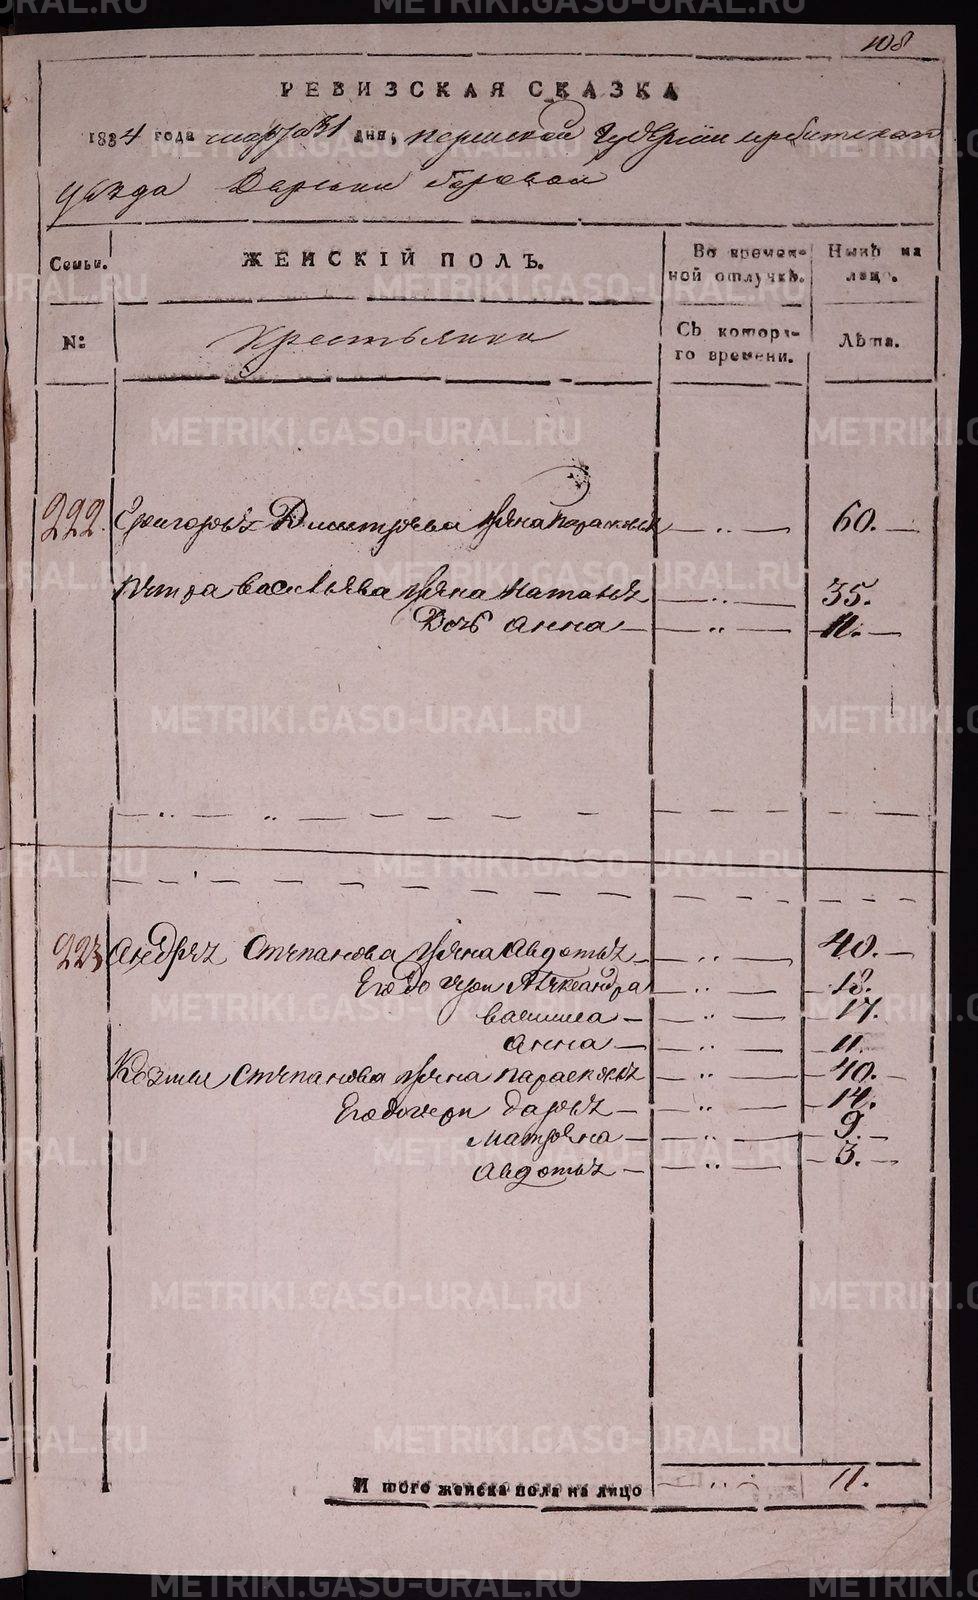 108
РЕВИЗСКАЯ СКАЗКА
1834 года марта 31 дня, пермской губернии ирбитскаго
уезда Деревни боровой
Семьи. ЖЕНСКІЙ ПОЛЪ. Во времен- Нынѣ на
ной отлучкѣ. лицо.
№: Крестьянки Съ котора- Лѣта.
го времени.
222. Григорья Дмитрева жена парасковья — „ — 60. —
петра васильева жена наталья — „ — 35.
Дочь анна — „ — 11. —
223 андрея степанова жена авдотья — „ — 40. —
Его дочери Александра — „ — 18. —
василиса — „ — 17.
анна — „ — 11.
Козмы степанова жена парасковья — „ — 40. —
Его дочери дарья — „ — 14.
матрена — „ — 9. —
авдотья — „ — 3. —
Итого женска пола на лицо — „ — 11.
METRIKI.GASO-URAL.RU